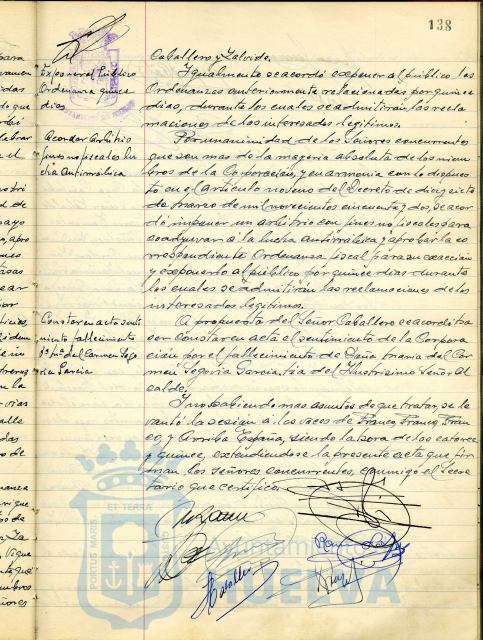 138
Caballero y Zalvide.
Exponer al Público
Ordenanza quince
dias
Igualmente se acordó exponer al público las
Ordenanzas anteriormente relacionadas por quince
dias, durante los cuales se admitirán las recla
maciones de los interesados legítimos.
Acordar Arbitrio
fines no fiscales lu
cha Antirrábica
Por unanimidad de los Señores concurrentes
que son mas de la mayoria absoluta de los miem
bros de la Corporación, y en armonia con lo dispues
to en el artículo noveno del Decreto de diez y siete
de marzo de mil novecientos cincuenta y dos, se acor
dó imponer un arbitrio con fines no fiscales para
coadyuvar a la lucha antirrábica y aprobar la co
rrespondiente Ordenanza fiscal para su exacción
y exponerlo al público por quince dias durante
los cuales se admitirán las reclamaciones de los
interesados legítimos.
Constar en acta senti
miento fallecimiento
Dª Mª del Carmen Sego
via Garcia
A propuesta del Señor Caballero se acordó ha
cer constar en acta el sentimiento de la Corpora
ción por el fallecimiento de Doña Maria del Car
men Segovia Garcia, tia del Ilustrisimo Señor Al
calde.
Y no habiendo mas asuntos de que tratar, se le
vantó la sesión a las voces de Franco, Franco, Fran
co, y Arriba España, siendo la hora de las catorce
y quince, extendiéndose la presente acta que fir
man los señores concurrentes, conmigo el Secre
tario que certifico.
Caballero
ET TERRA
PORTUS MARIS
Ayuntamiento
HUELVA